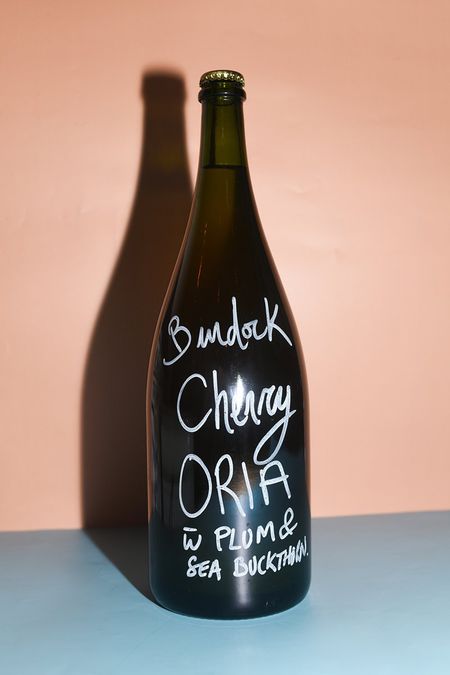 Burdock
Cherry
ORIA
w̄ PLUM &
SEA BUCKTHORN.